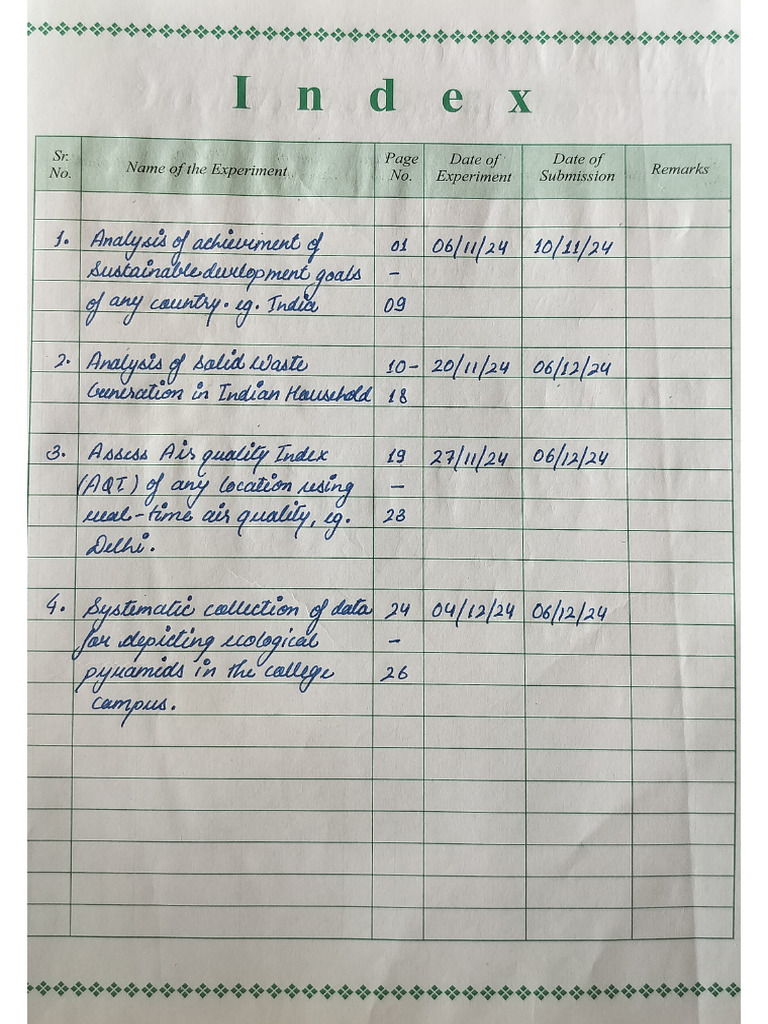 Index
Sr. No. Name of the Experiment Page No. Date of Experiment Date of Submission Remarks
1. Analysis of achievement of 01 06/11/24 10/11/24
Sustainable development goals -
of any country. eg. India 09
2. Analysis of Solid Waste 10- 20/11/24 06/12/24
Generation in Indian Household 18
3. Assess Air quality Index 19 27/11/24 06/12/24
(AQI) of any location using -
real-time air quality, eg. 23
Delhi.
4. Systematic collection of data 24 04/12/24 06/12/24
for depicting ecological -
pyramids in the college 26
campus.